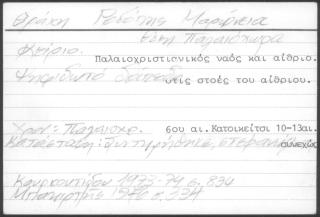 Θράκη Ροδόπης Μαρώνεια
θέση Παλαιόχωρα
Κτίριο. Παλαιοχριστιανικός ναός και αίθριο.
Ψηφιδωτό δάπεδο στις στοές του αίθριου.
Χρον: Παλαιοχρ. 6ου αι. Κατοικείτσι 10-13αι.
Κατάσταση: Συντηρήθηκε, στερεώθηκε συνεχώς
Κουρκουτίδου 1973-74 σ. 834
Μπακιρτζής 1976 σ. 334